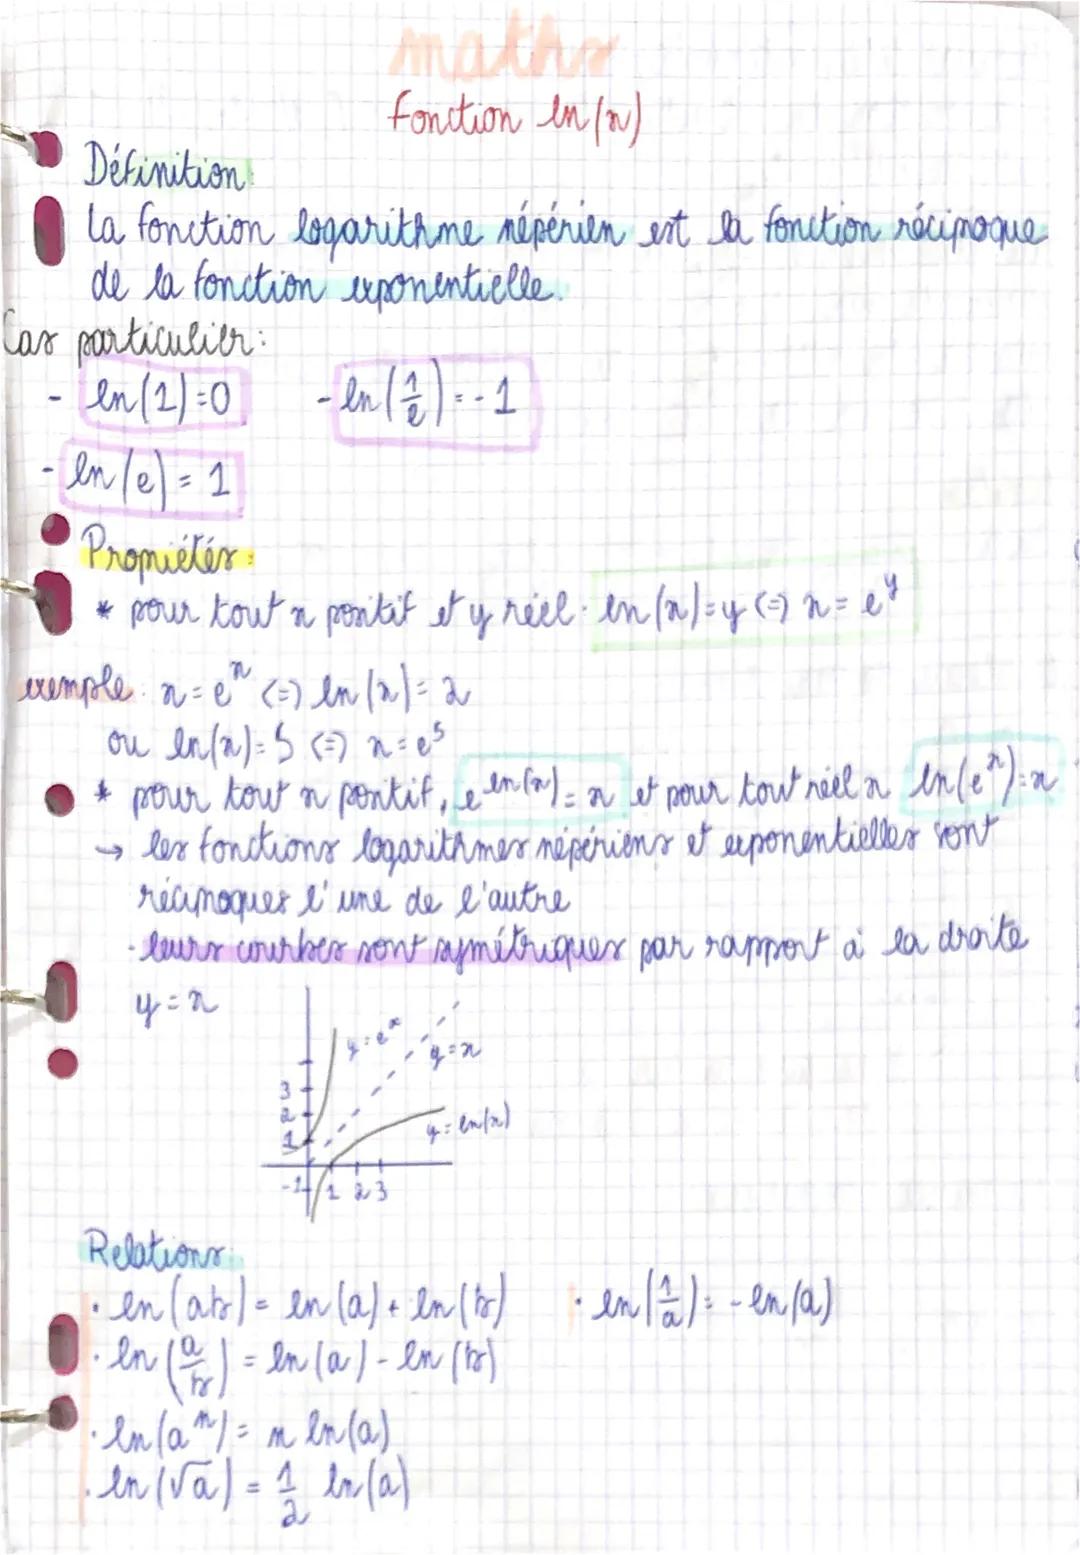 maths
fonction ln(x)
Définition:
La fonction logarithme népérien est la fonction réciproque
de la fonction exponentielle.
Cas particulier:
- ln(1)=0 - ln(1/e)=-1
- ln(e)=1
Propriétés:
* pour tout x positif et y réel: ln(x)=y <=> x=e^y
exemple: x=e^x <=> ln(x)=2
ou ln(x)=5 <=> x=e^5
* pour tout x positif, e^ln(x)=x et pour tout réel x ln(e^x)=x
→ les fonctions logarithmes népériens et exponentielles sont
réciproques l'une de l'autre
- leurs courbes sont symétriques par rapport à la droite
y=x
y=e^x
y=x
3
2
1
y=ln(x)
-1 1 2 3
Relations:
· ln(ab)=ln(a)+ln(b) · ln(1/a)=-ln(a)
· ln(a/b)=ln(a)-ln(b)
· ln(a^n)=n ln(a)
· ln(√a)=1/2 ln(a)